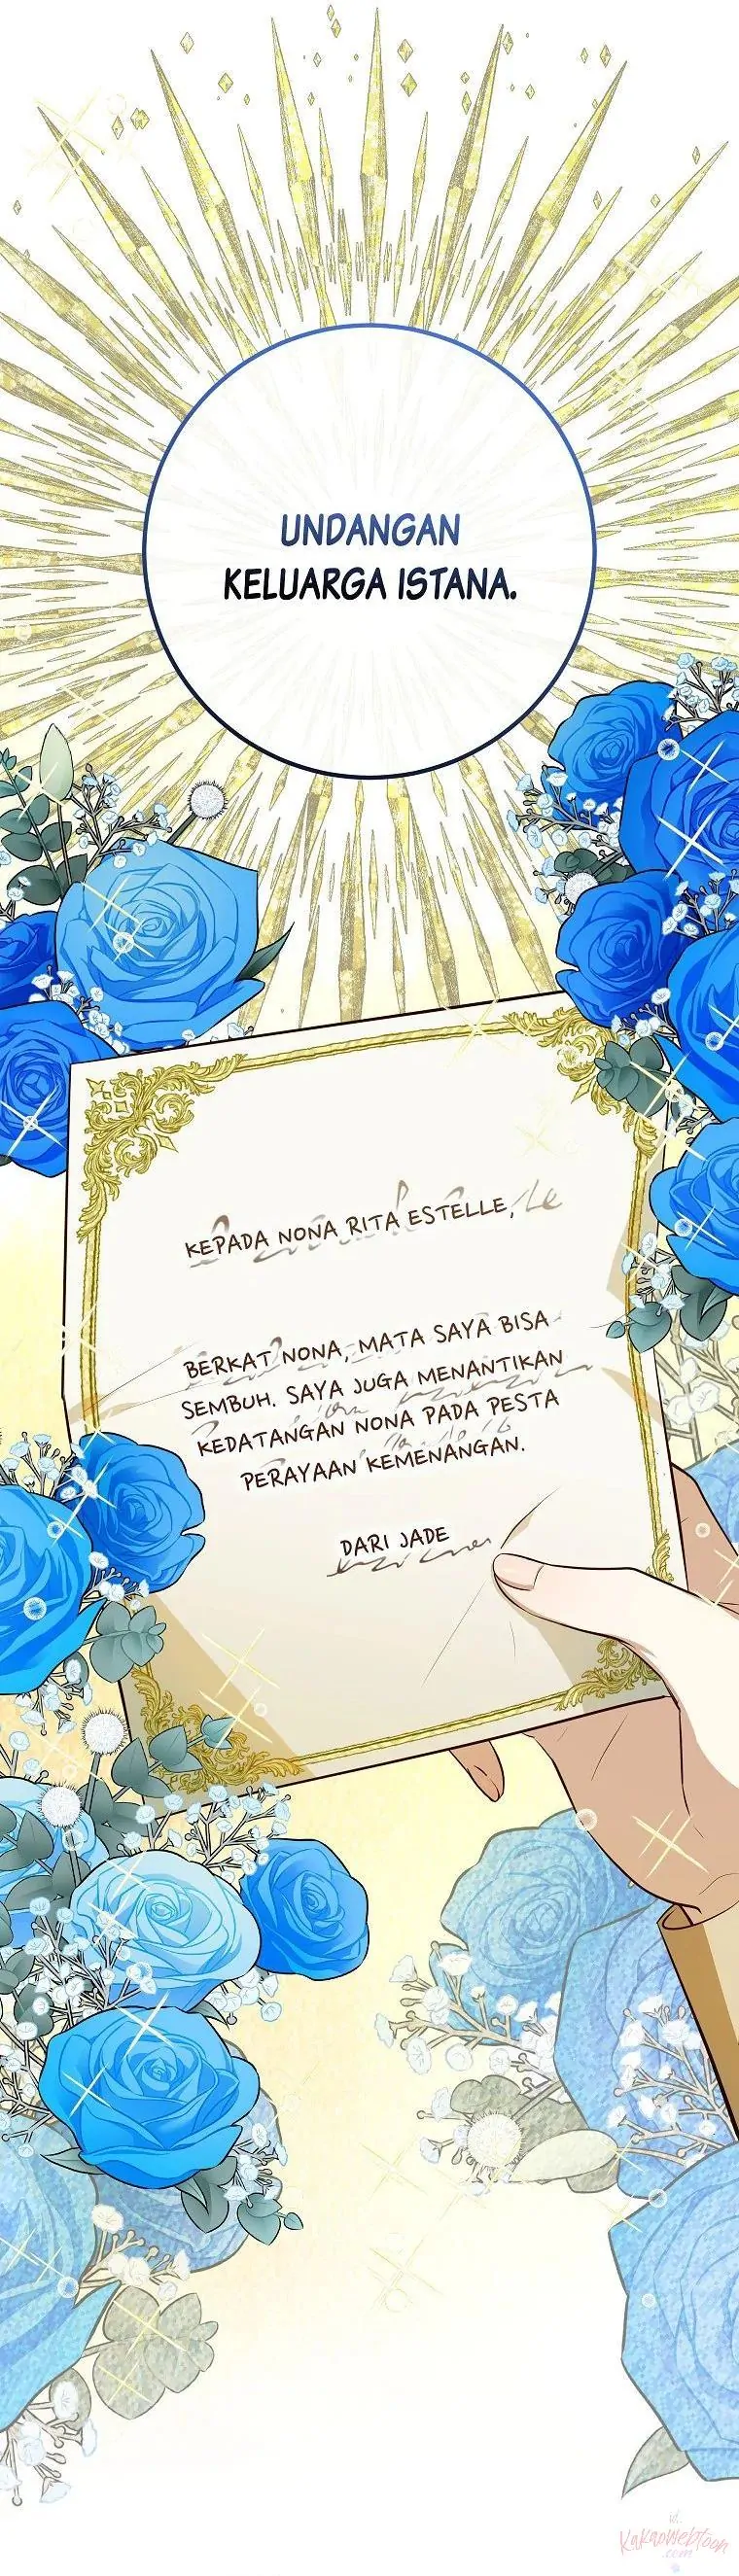 UNDANGAN
KELUARGA ISTANA.
KEPADA NONA RITA ESTELLE,
BERKAT NONA, MATA SAYA BISA
SEMBUH. SAYA JUGA MENANTIKAN
KEDATANGAN NONA PADA PESTA
PERAYAAN KEMENANGAN.
DARI JADE
kakaowebtoon
.com